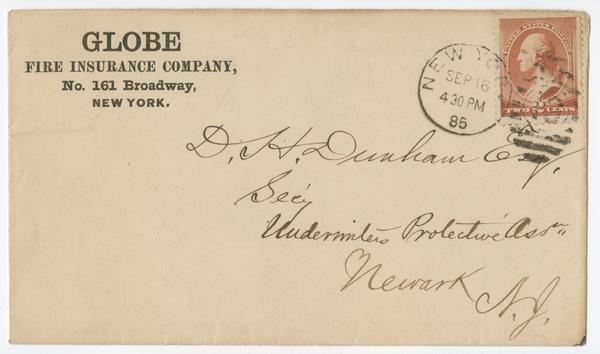 GLOBE
FIRE INSURANCE COMPANY,
No. 161 Broadway,
NEW YORK.
NEW YORK
SEP 18
4 30 PM
85
TWO 2 CENTS
D. H. Dunham Esq.
Sec'y
Underwriters Protective Assn
Newark
N.J.